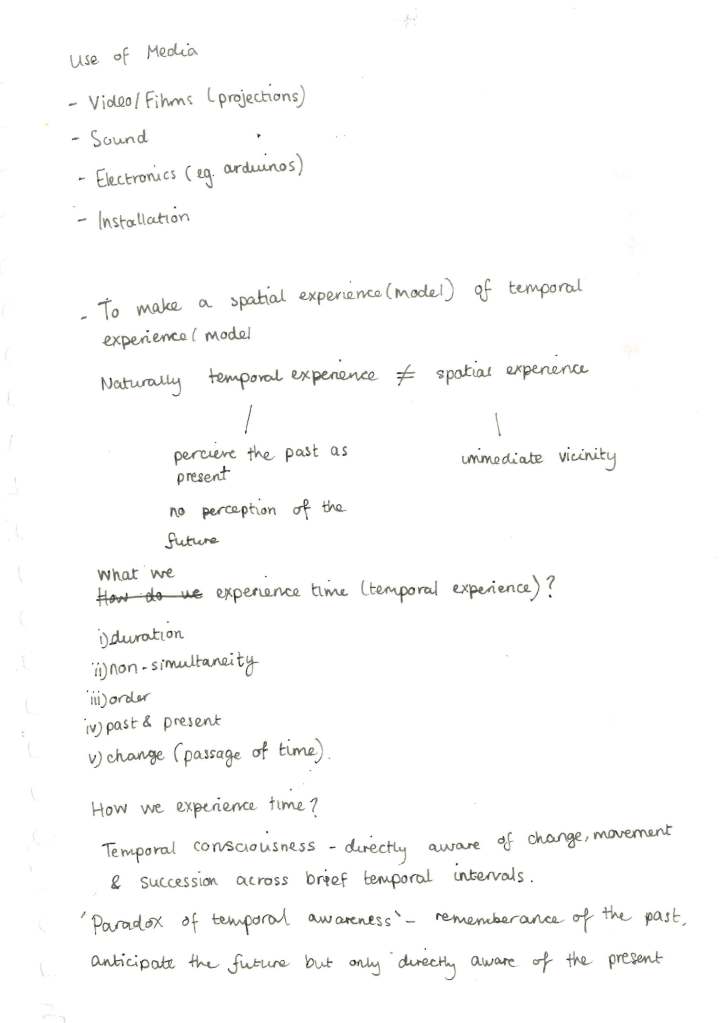 Use of Media
- Video/Fihms (projections)
- Sound
- Electronics (eg. arduinos)
- Installation
- To make a spatial experience (model) of temporal
experience ( model
Naturally temporal experience ≠ spatial experience
percieve the past as
present
immediate vicinity
no perception of the
future
What we
How do we experience time (temporal experience)?
i) duration
ii) non-simultaneity
iii) order
iv) past & present
v) change (passage of time).
How we experience time?
Temporal consciousness - directly aware of change, movement
& succession across brief temporal intervals.
'Paradox of temporal awareness' - rememberance of the past,
anticipate the future but only directly aware of the present